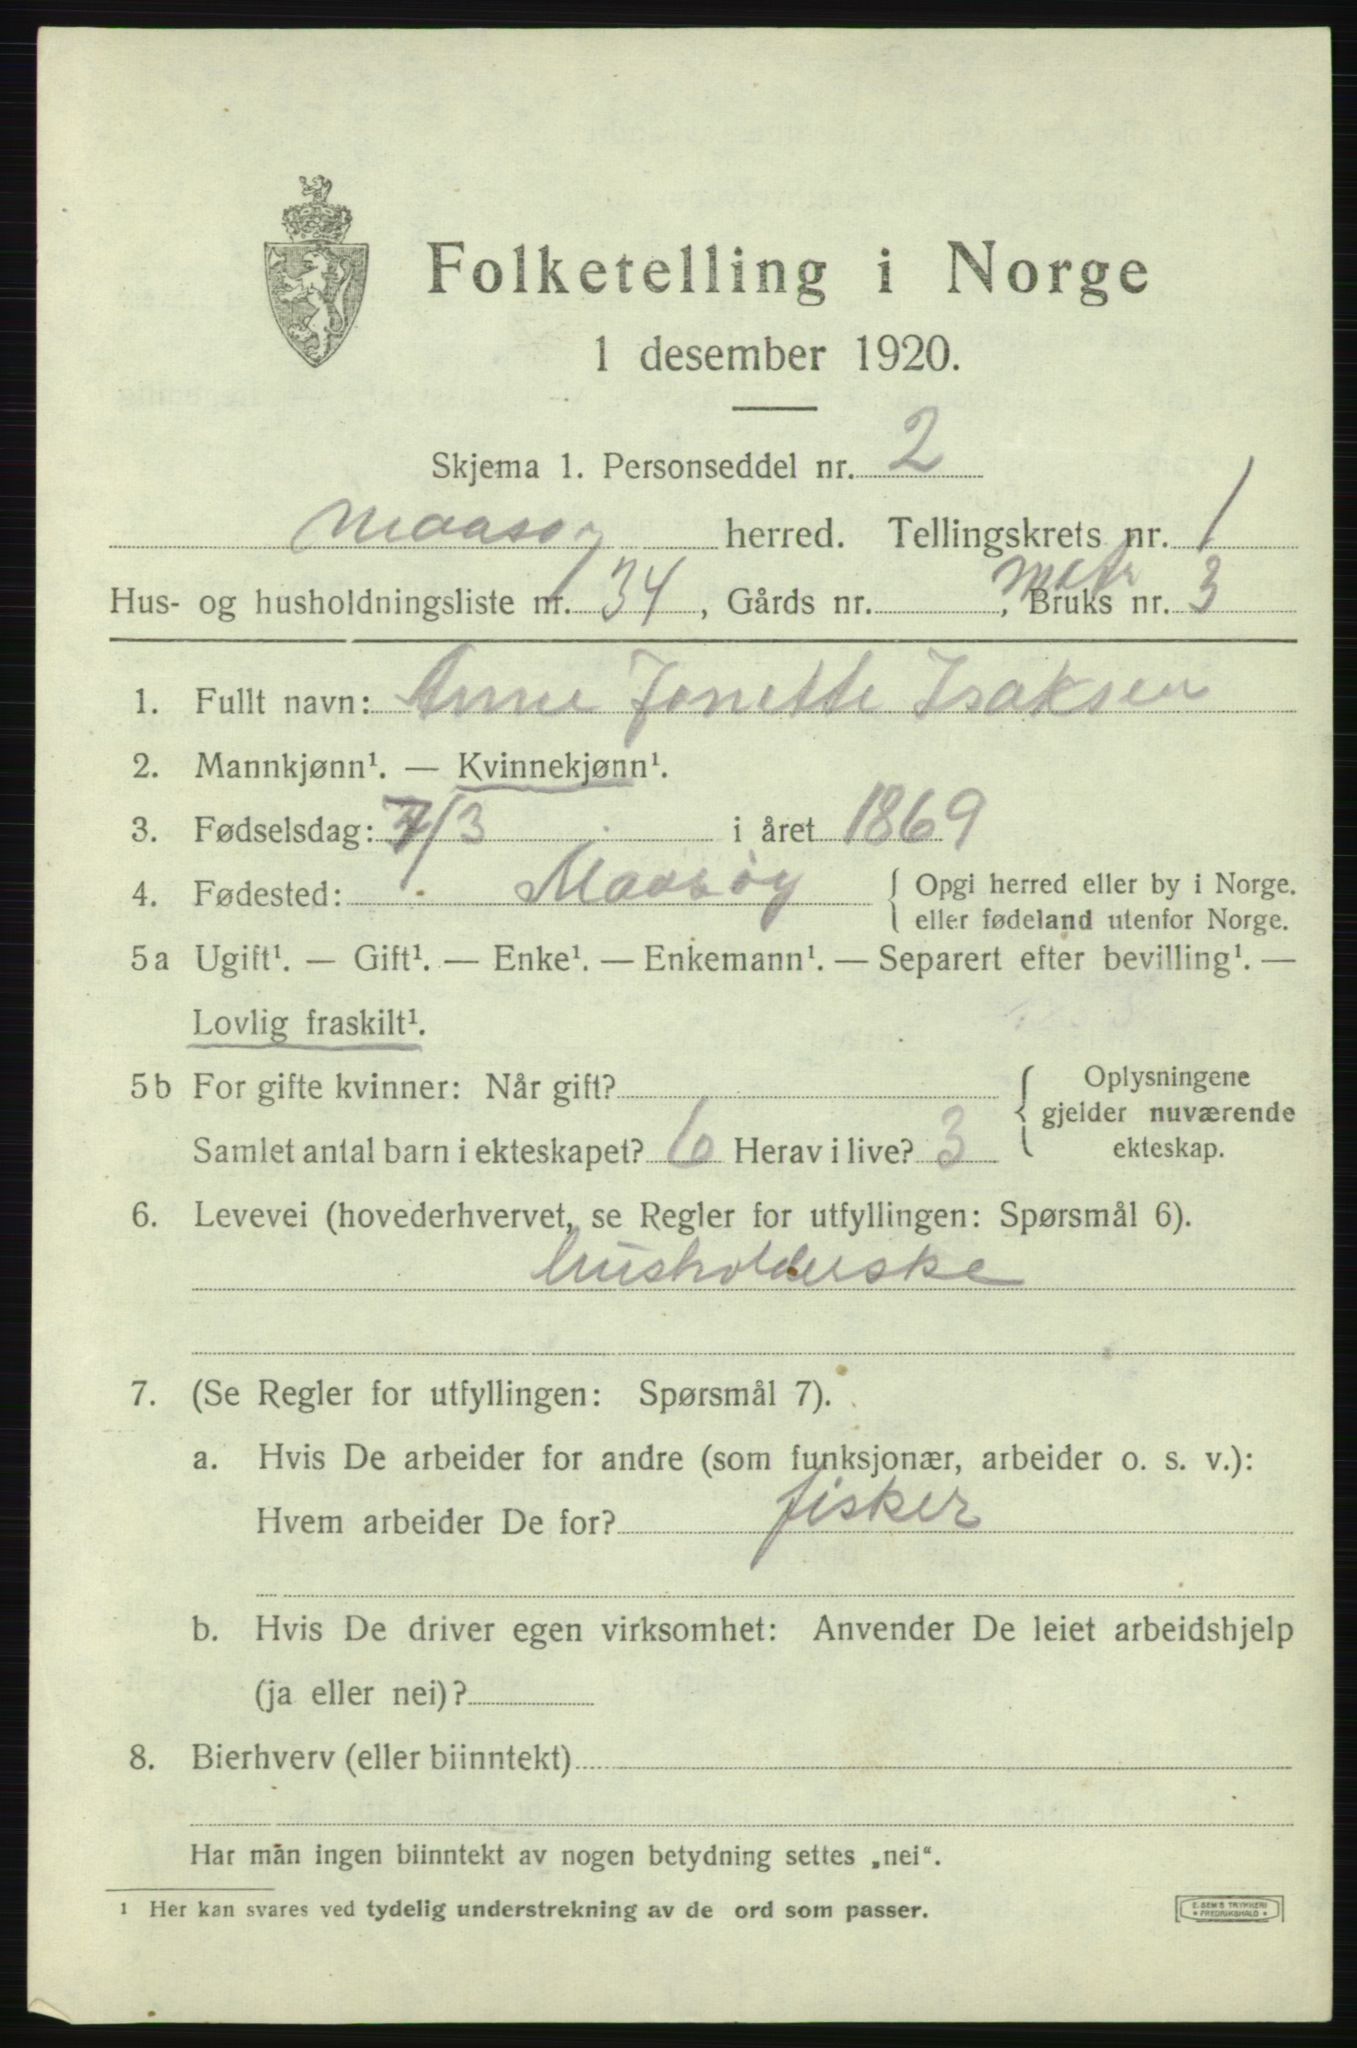 Folketelling i Norge
1 desember 1920.
Skjema 1. Personseddel nr. 2
Maasøy herred. Tellingskrets nr. 1
Hus- og husholdningsliste nr. 34, Gårds nr. , Matr Bruks nr. 3
1. Fullt navn: Anne Jonette Isaksen
2. Mannkjønn¹. — Kvinnekjønn¹.
3. Fødselsdag: 7/3 i året 1869
4. Fødested: Maasøy { Opgi herred eller by i Norge.
eller fødeland utenfor Norge.
5a Ugift¹. — Gift¹. — Enke¹. — Enkemann¹. — Separert efter bevilling¹. —
Lovlig fraskilt¹.
5b For gifte kvinner: Når gift? { Oplysningene
gjelder nuværende
Samlet antal barn i ekteskapet? 6 Herav i live? 3 ekteskap.
6. Levevei (hovederhvervet, se Regler for utfyllingen: Spørsmål 6).
husholderske
7. (Se Regler for utfyllingen: Spørsmål 7).
a. Hvis De arbeider for andre (som funksjonær, arbeider o. s. v.):
Hvem arbeider De for? fisker
b. Hvis De driver egen virksomhet: Anvender De leiet arbeidshjelp
(ja eller nei)?
8. Bierhverv (eller biinntekt)
Har man ingen biinntekt av nogen betydning settes „nei“.
1 Her kan svares ved tydelig understrekning av de ord som passer.
E. SEM'S TRYKKERI
* FREDRIKSHALD *